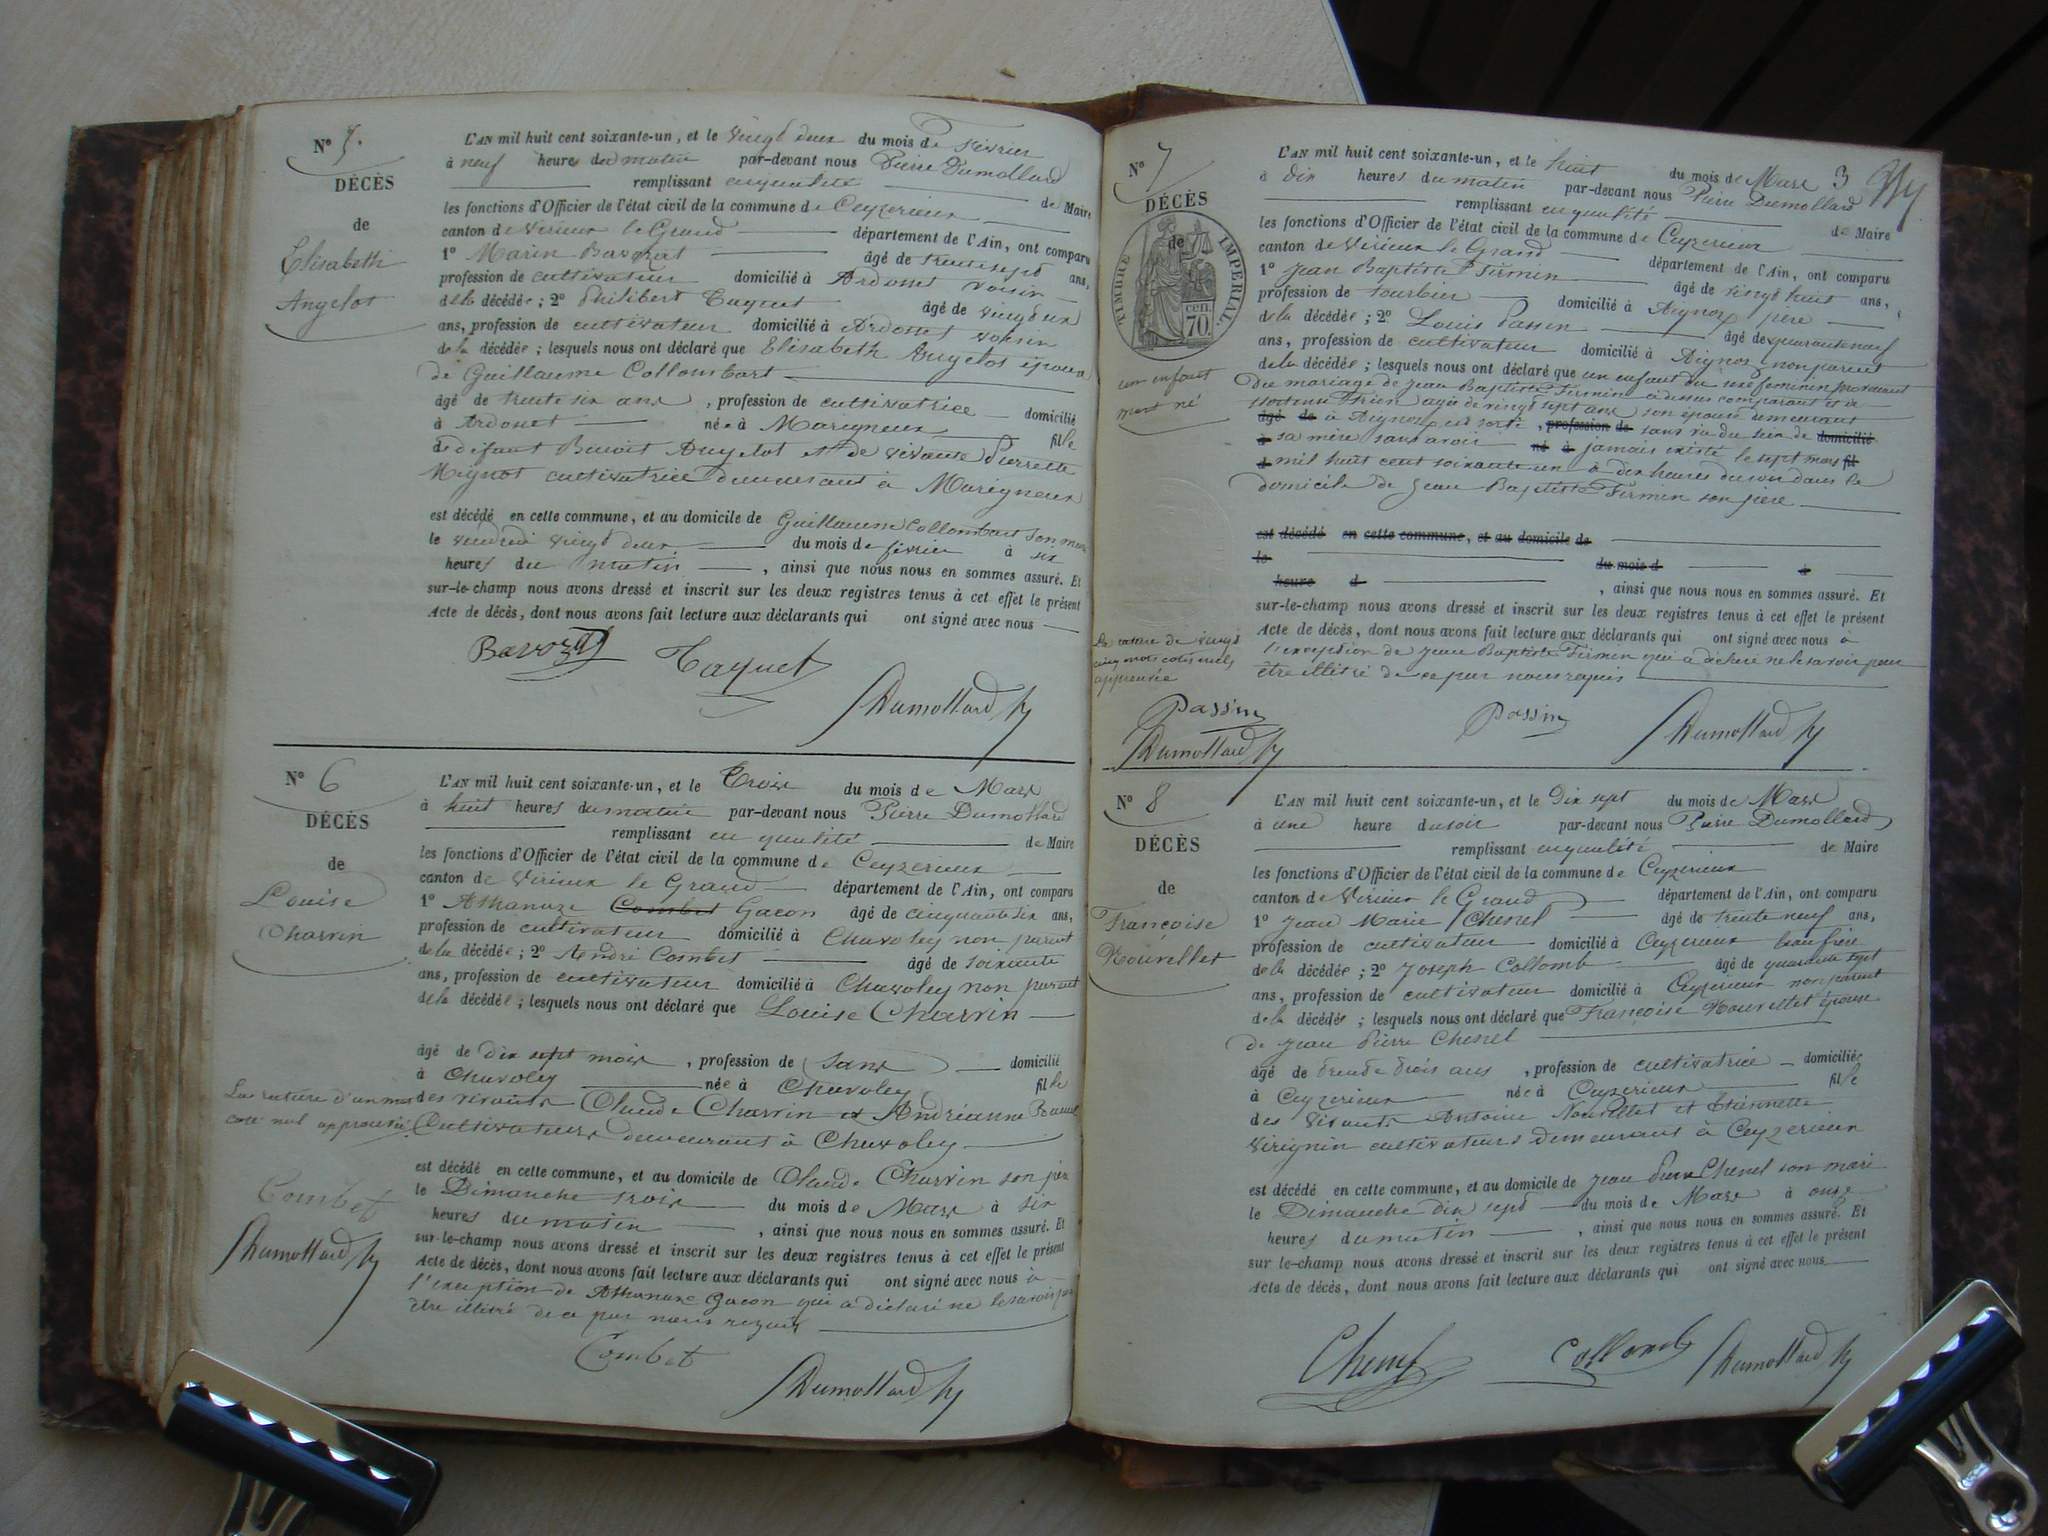 N° 5.
DÉCÈS
de
Elisabeth
Angelot
L'AN mil huit cent soixante-un, et le vingt deux du mois de Février
à neuf heures du matin par-devant nous Pierre Dumollard
remplissant en qualité de Maire
les fonctions d'Officier de l'état civil de la commune de Ceyzerieux
canton de Virieux le Grand département de l'Ain, ont comparu
1° Marin Bavozat âgé de trente sept ans,
profession de cultivateur domicilié à Ardosset voisin
de la décédée; 2° Philibert Taquet âgé de vingt deux
ans, profession de cultivateur domicilié à Ardosset voisin
de la décédée; lesquels nous ont déclaré que Elisabeth Angelot épouse
de Guillaume Collombart
âgé de trente six ans, profession de cultivatrice domicilié
à Ardosset née à Marigneux fille
de défunt Benoit Angelot et de vivante Pierrette
Mignot cultivatrice demeurant à Marigneux
est décédé en cette commune, et au domicile de Guillaume Collombart son mari
le vendredi vingt deux du mois de février à six
heures du matin, ainsi que nous nous en sommes assuré. Et
sur-le-champ nous avons dressé et inscrit sur les deux registres tenus à cet effet le présent
Acte de décès, dont nous avons fait lecture aux déclarants qui ont signé avec nous
Bavozat Taquet
Dumollard
N° 6
DÉCÈS
de
Louise
Charvin
L'AN mil huit cent soixante-un, et le Trois du mois de Mars
à huit heures du matin par-devant nous Pierre Dumollard
remplissant en qualité de Maire
les fonctions d'Officier de l'état civil de la commune de Ceyzerieux
canton de Virieux le Grand département de l'Ain, ont comparu
1° Athanaze Combet Gacon âgé de cinquante six ans,
profession de cultivateur domicilié à Chavoley non parent
de la décédée; 2° André Combet âgé de soixante
ans, profession de cultivateur domicilié à Chavoley non parent
de la décédée; lesquels nous ont déclaré que Louise Charvin
âgé de dix sept mois, profession de sans domicilié
à Chavoley née à Chavoley fille
des vivants Claude Charvin et Andréanne
Cultivateurs demeurant à Chavoley
est décédé en cette commune, et au domicile de Claude Charvin son père
le Dimanche trois du mois de Mars à six
heures du matin, ainsi que nous nous en sommes assuré. Et
sur-le-champ nous avons dressé et inscrit sur les deux registres tenus à cet effet le présent
Acte de décès, dont nous avons fait lecture aux déclarants qui ont signé avec nous à
l'exception de Athanaze Gacon qui a déclaré ne le savoir pour
être illitré de ce par nous requis
La rature d'un mot
coté nul approuvée
Combet
Dumollard
Combet
Dumollard
N° 7
DÉCÈS
de
TIMBRE IMPERIAL
70 cen.
un enfant
mort né
3
L'AN mil huit cent soixante-un, et le huit du mois de Mars
à dix heures du matin par-devant nous Pierre Dumollard
remplissant en qualité de Maire
les fonctions d'Officier de l'état civil de la commune de Ceyzerieux
canton de Virieux le Grand département de l'Ain, ont comparu
1° Jean Baptiste Firmin âgé de vingt huit ans,
profession de tourbier domicilié à Aignoz père
de la décédée; 2° Louis Passin âgé de quarante neuf
ans, profession de cultivateur domicilié à Aignoz non parent
de la décédée; lesquels nous ont déclaré que un enfant du sexe féminin provenant
du mariage de Jean Baptiste Firmin ci dessus comparant et de
agée de vingt sept ans son épouse demeurant
âgé de à Aignoz est sorti, profession de sans vie du sein de domicilié
à sa mère sans avoir né à jamais existé le sept mars fil
d mil huit cent soixante un à dix heures du soir dans le
domicile de Jean Baptiste Firmin son père
est décédé en cette commune, et au domicile de
le du mois d à
heure d, ainsi que nous nous en sommes assuré. Et
sur-le-champ nous avons dressé et inscrit sur les deux registres tenus à cet effet le présent
Acte de décès, dont nous avons fait lecture aux déclarants qui ont signé avec nous à
l'exception de Jean Baptiste Firmin qui a déclaré ne le savoir pour
être illitré de ce par nous requis
La rature de vingt
cinq mots cotés nuls
approuvée
Passin
Dumollard
Passin Dumollard
N° 8
DÉCÈS
de
Françoise
Nourellet
L'AN mil huit cent soixante-un, et le Dix sept du mois de Mars
à une heure du soir par-devant nous Pierre Dumollard
remplissant en qualité de Maire
les fonctions d'Officier de l'état civil de la commune de Ceyzerieux
canton de Virieux le Grand département de l'Ain, ont comparu
1° Jean Marie Chenel âgé de trente neuf ans,
profession de cultivateur domicilié à Ceyzerieux beau frère
de la décédée; 2° Joseph Collomb âgé de quarante sept
ans, profession de cultivateur domicilié à Ceyzerieux non parent
de la décédée; lesquels nous ont déclaré que Françoise Nourellet épouse
de Jean Pierre Chenel
âgé de trente trois ans, profession de cultivatrice domiciliée
à Ceyzerieux née à Ceyzerieux fille
des vivants Antoine Nourellet et Etiennette
Virignin cultivateurs demeurant à Ceyzerieux
est décédé en cette commune, et au domicile de Jean Pierre Chenel son mari
le Dimanche dix sept du mois de Mars à onze
heures du matin, ainsi que nous nous en sommes assuré. Et
sur le champ nous avons dressé et inscrit sur les deux registres tenus à cet effet le présent
Acte de décès, dont nous avons fait lecture aux déclarants qui ont signé avec nous
Chenel Collomb Dumollard